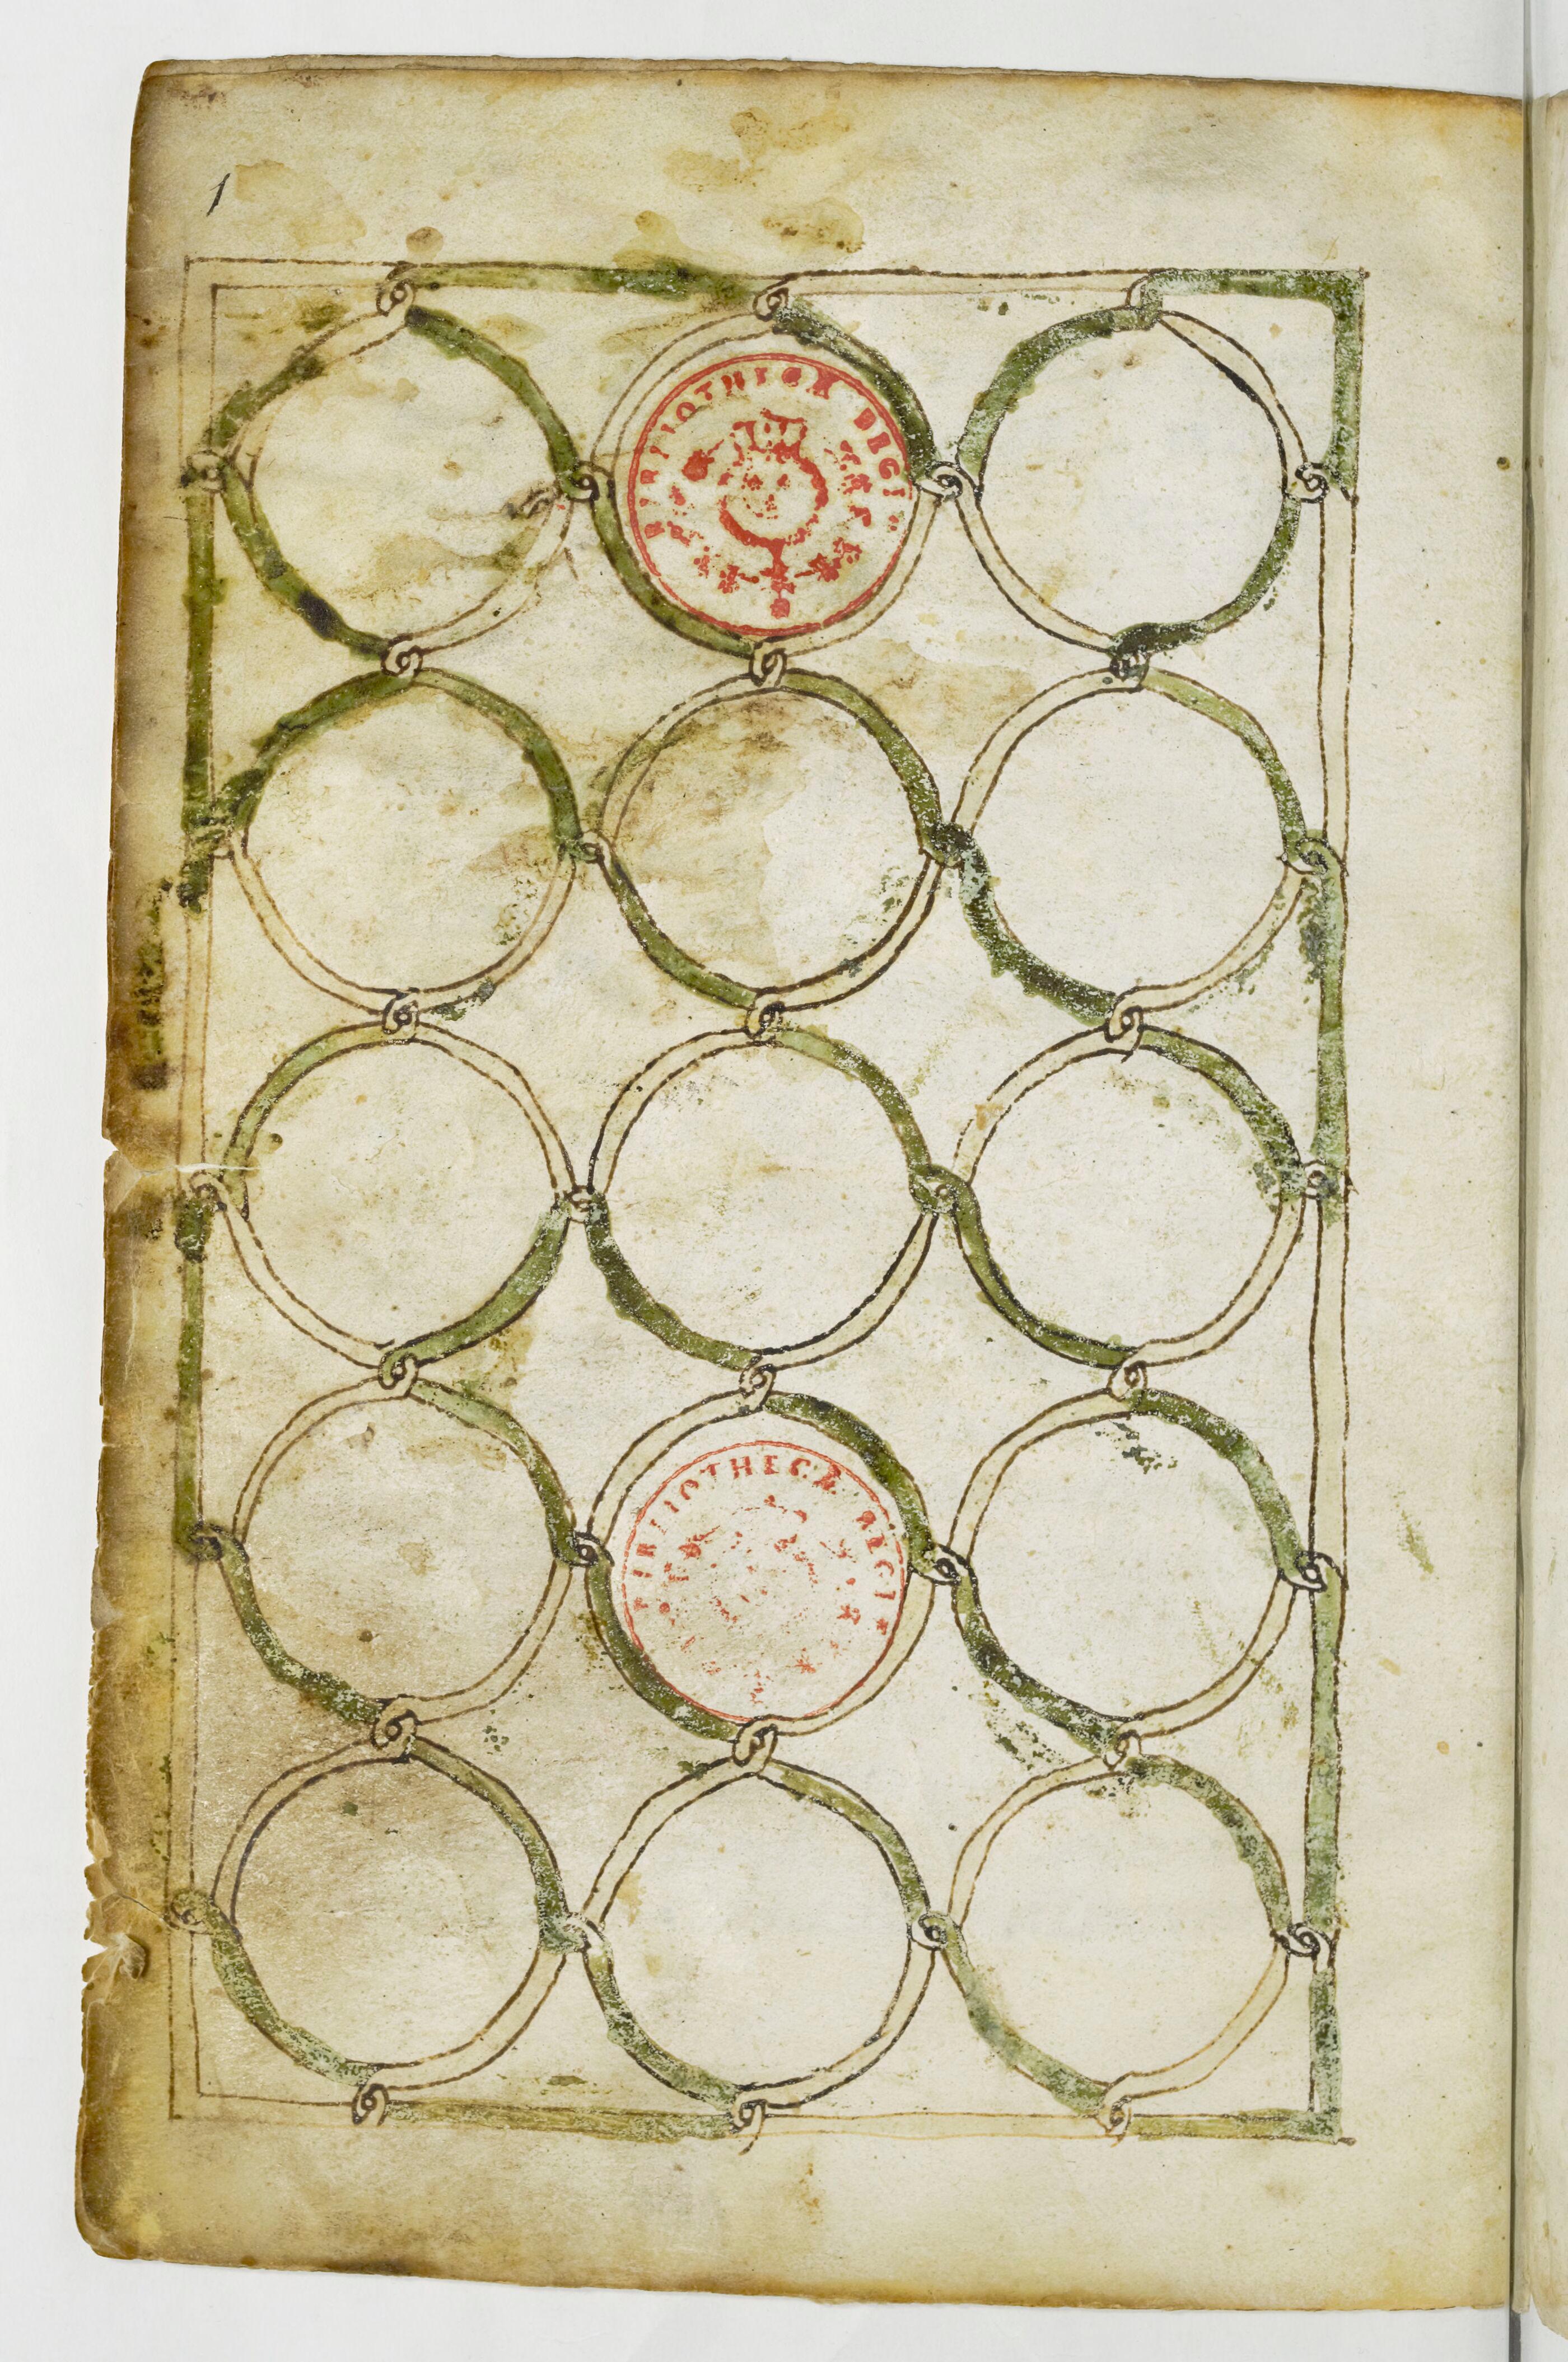 1
BIBLIOTHECA REGI
BIBLIOTHECA REGI